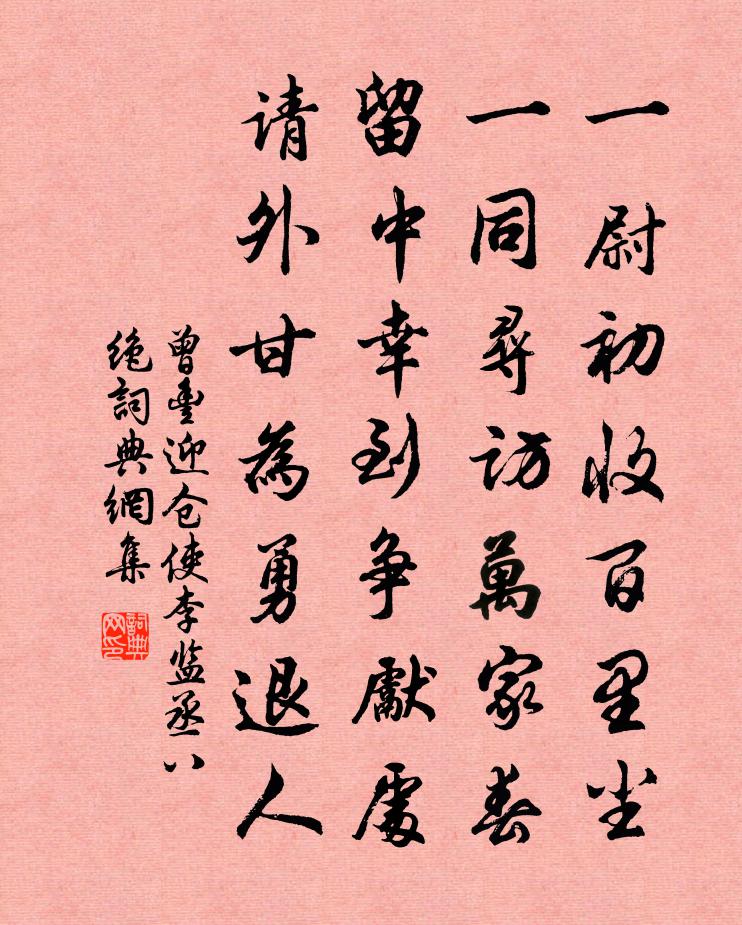 一尉初收百里尘
一同尋访萬家春
留中幸到争獻處
请外甘為勇退人
曾豊迎仓使李监丞八
绝詞典網集
詞典
网印